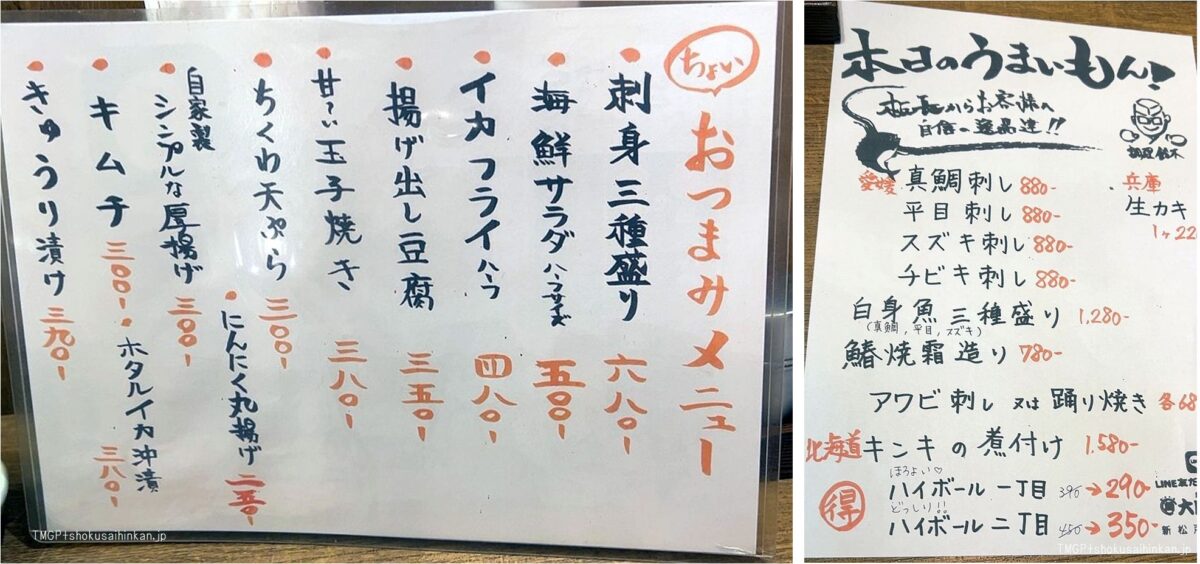 ちょい
おつまみメニュー
刺身三種盛り 六八〇-
海鮮サラダハーフサイズ 五〇〇-
イカフライハーフ 四八〇-
揚げ出し豆腐 三五〇-
甘〜い玉子焼き 三八〇-
ちくわ天ぷら 三〇〇-
にんにく丸揚げ 二五〇-
自家製
シンプルな厚揚げ 三〇〇-
キムチ 三〇〇-
ホタルイカ沖漬 三八〇-
きゅうり漬け 三九〇-
TMGP†shokusaihinkan.jp
本日のうまいもん!
板長からお客様へ
自信の逸品達!!
愛媛 真鯛刺し 880-
平目刺し 880-
スズキ刺し 880-
チビキ刺し 880-
白身魚三種盛り 1,280-
(真鯛,平目,スズキ)
鰆焼霜造り 780-
アワビ刺し 又は 踊り焼き 各68
北海道 キンキの煮付け 1,580-
得
ほろよい♡
ハイボール一丁目 390→290-
どっしり!!
ハイボール二丁目 450→350-
兵庫
生カキ
1ヶ22
LINE友だ
大
新松戸
TMGP†shokusaihinkan.jp